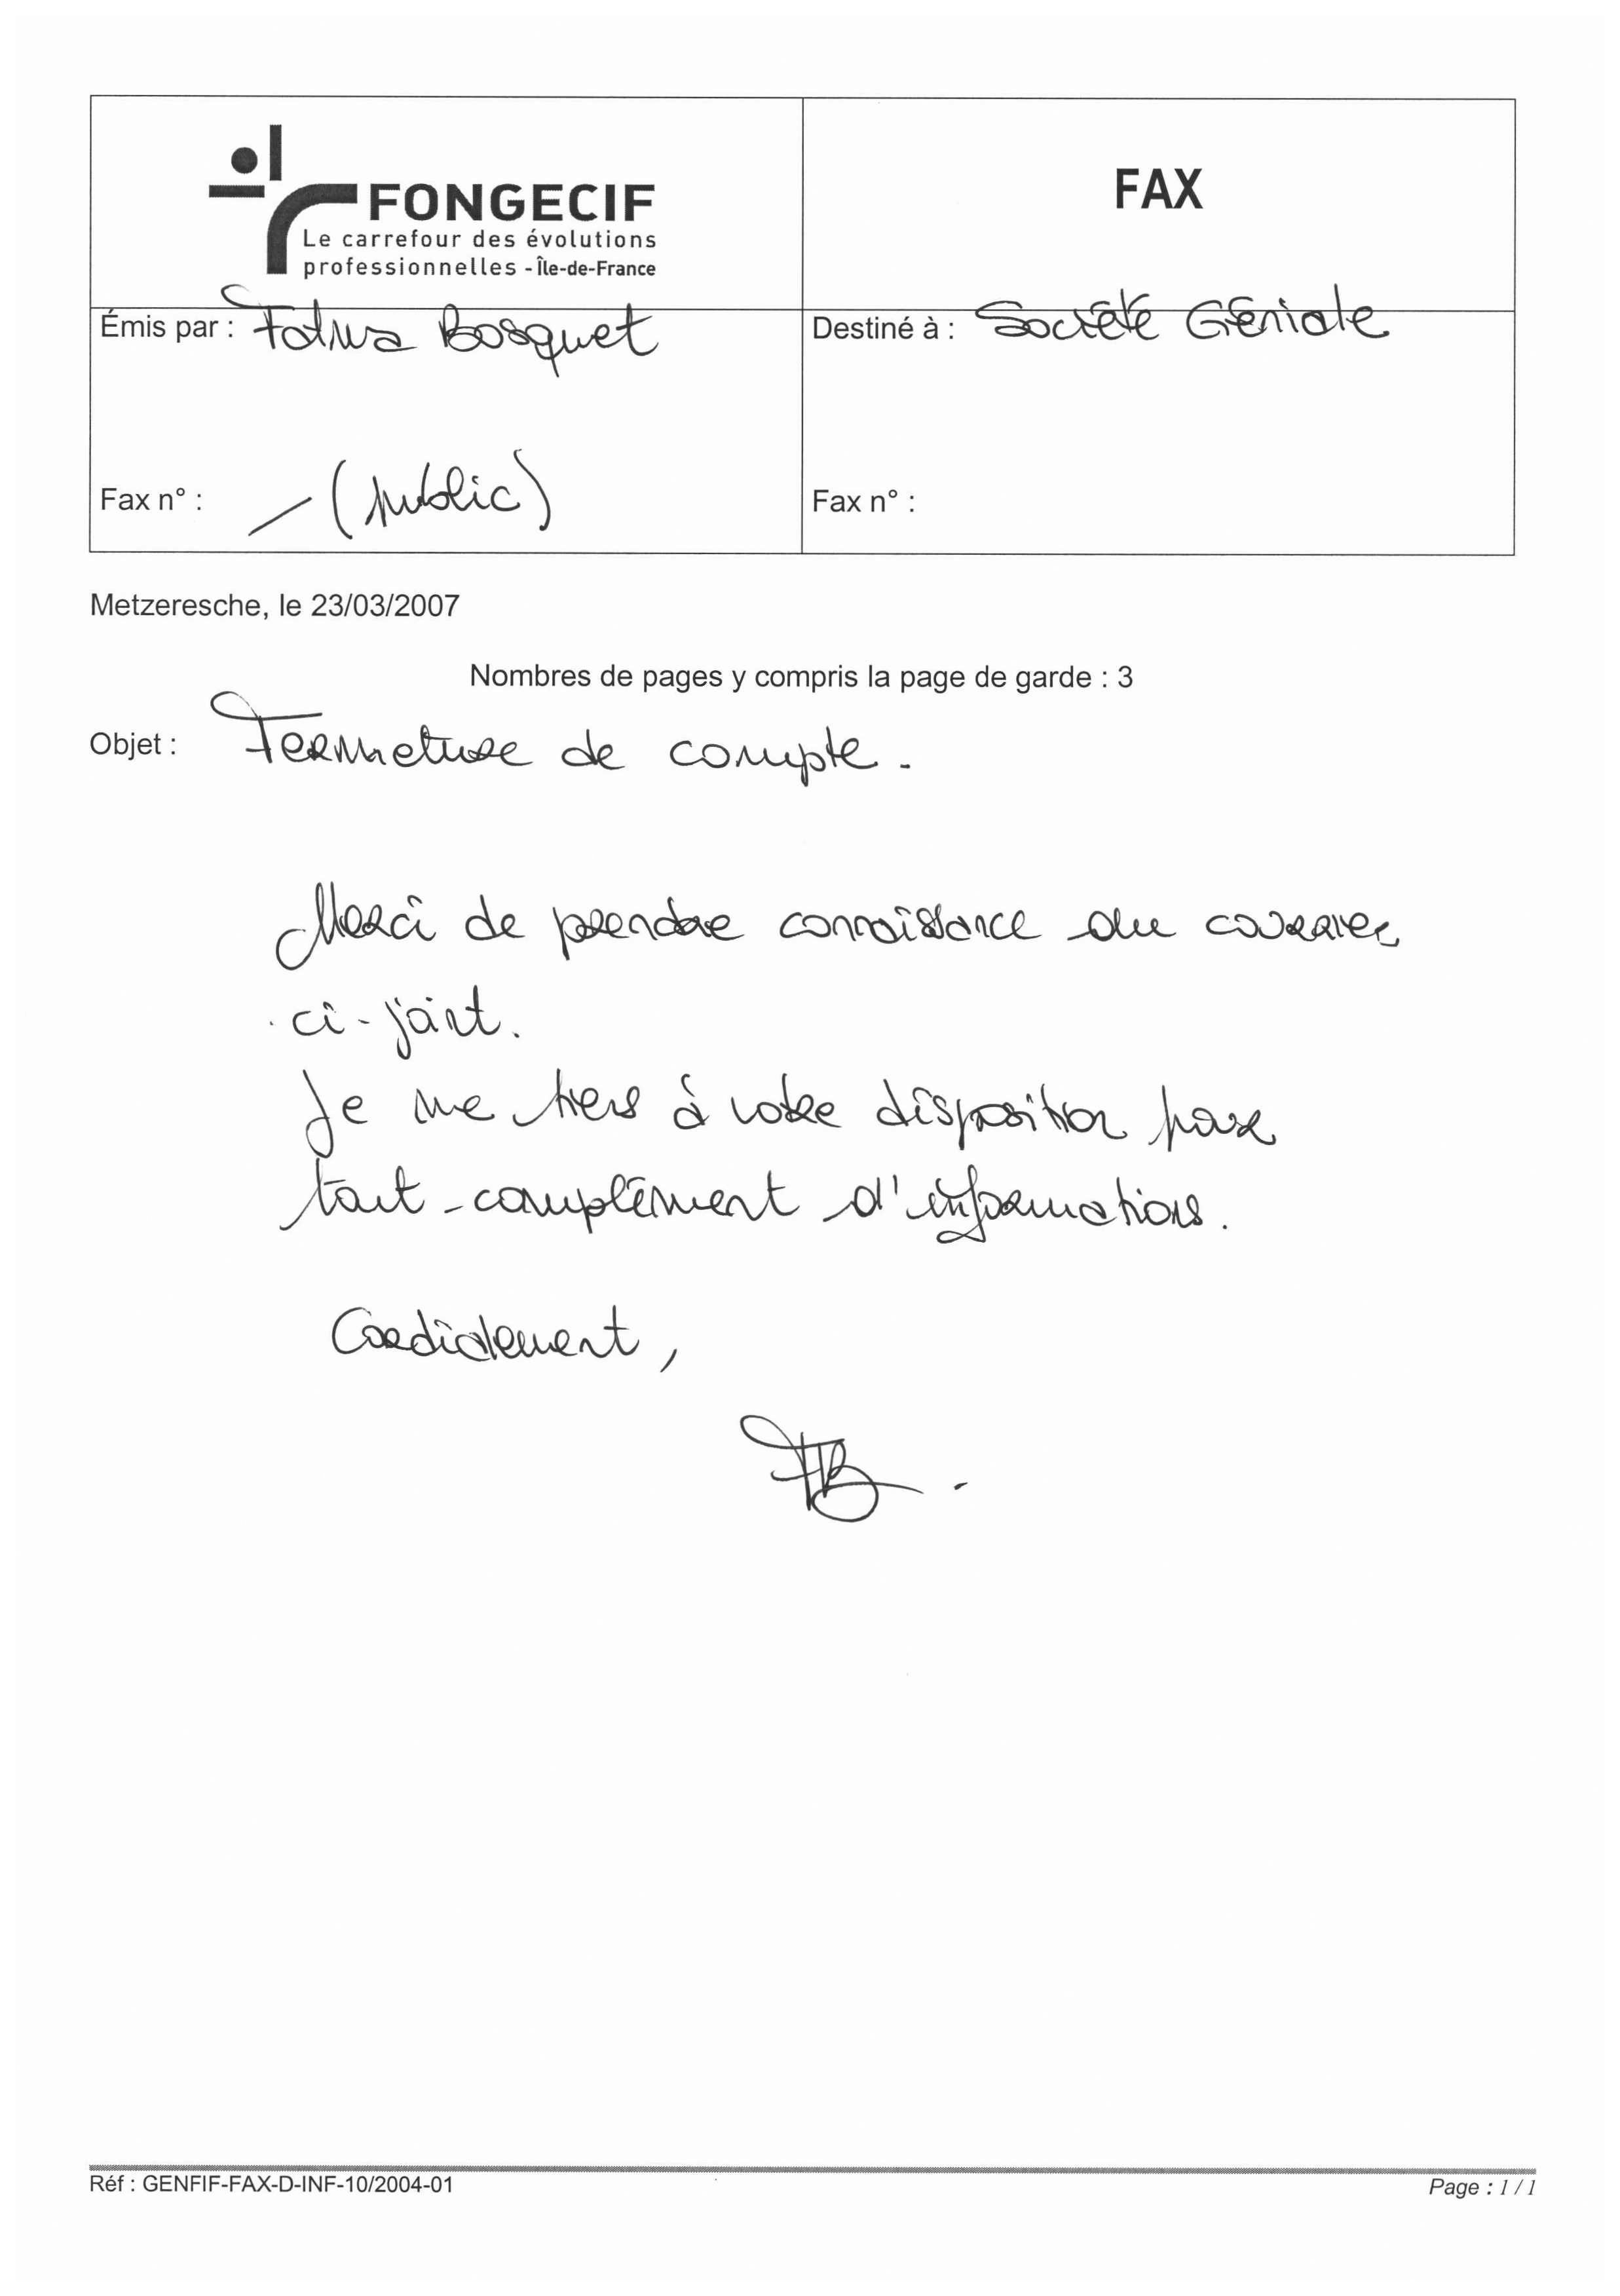 FONGECIF
Le carrefour des évolutions
professionnelles - Île-de-France
FAX
Émis par : Fatma Bosquet
Destiné à : Société Géniale
Fax n° : — (public)
Fax n° :
Metzeresche, le 23/03/2007
Nombres de pages y compris la page de garde : 3
Objet : Fermeture de compte.
Merci de prendre connaissance du courrier
ci-joint.
Je me tiens à votre disposition pour
tout complément d'informations.
Cordialement,
FB
Réf : GENFIF-FAX-D-INF-10/2004-01
Page : 1 / 1